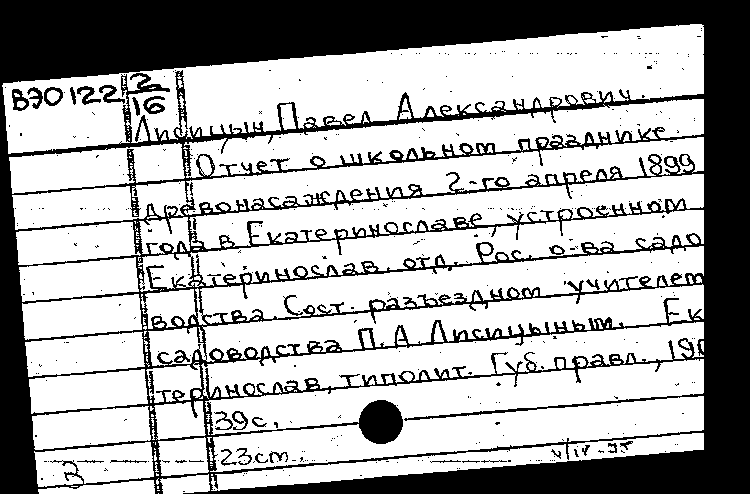 ВЭО122 2/16
Лисицын, Павел Александрович.
Отчет о школьном празднике
древонасаждения 2-го апреля 1899
года в Екатеринославе, устроенном
Екатеринослав. отд. Рос. о-ва садо
водства. Сост. разъездном учителем
садоводства П.А. Лисицыным. Ек
теринослав, типолит. Губ. правл., 190
39с.
23cm.